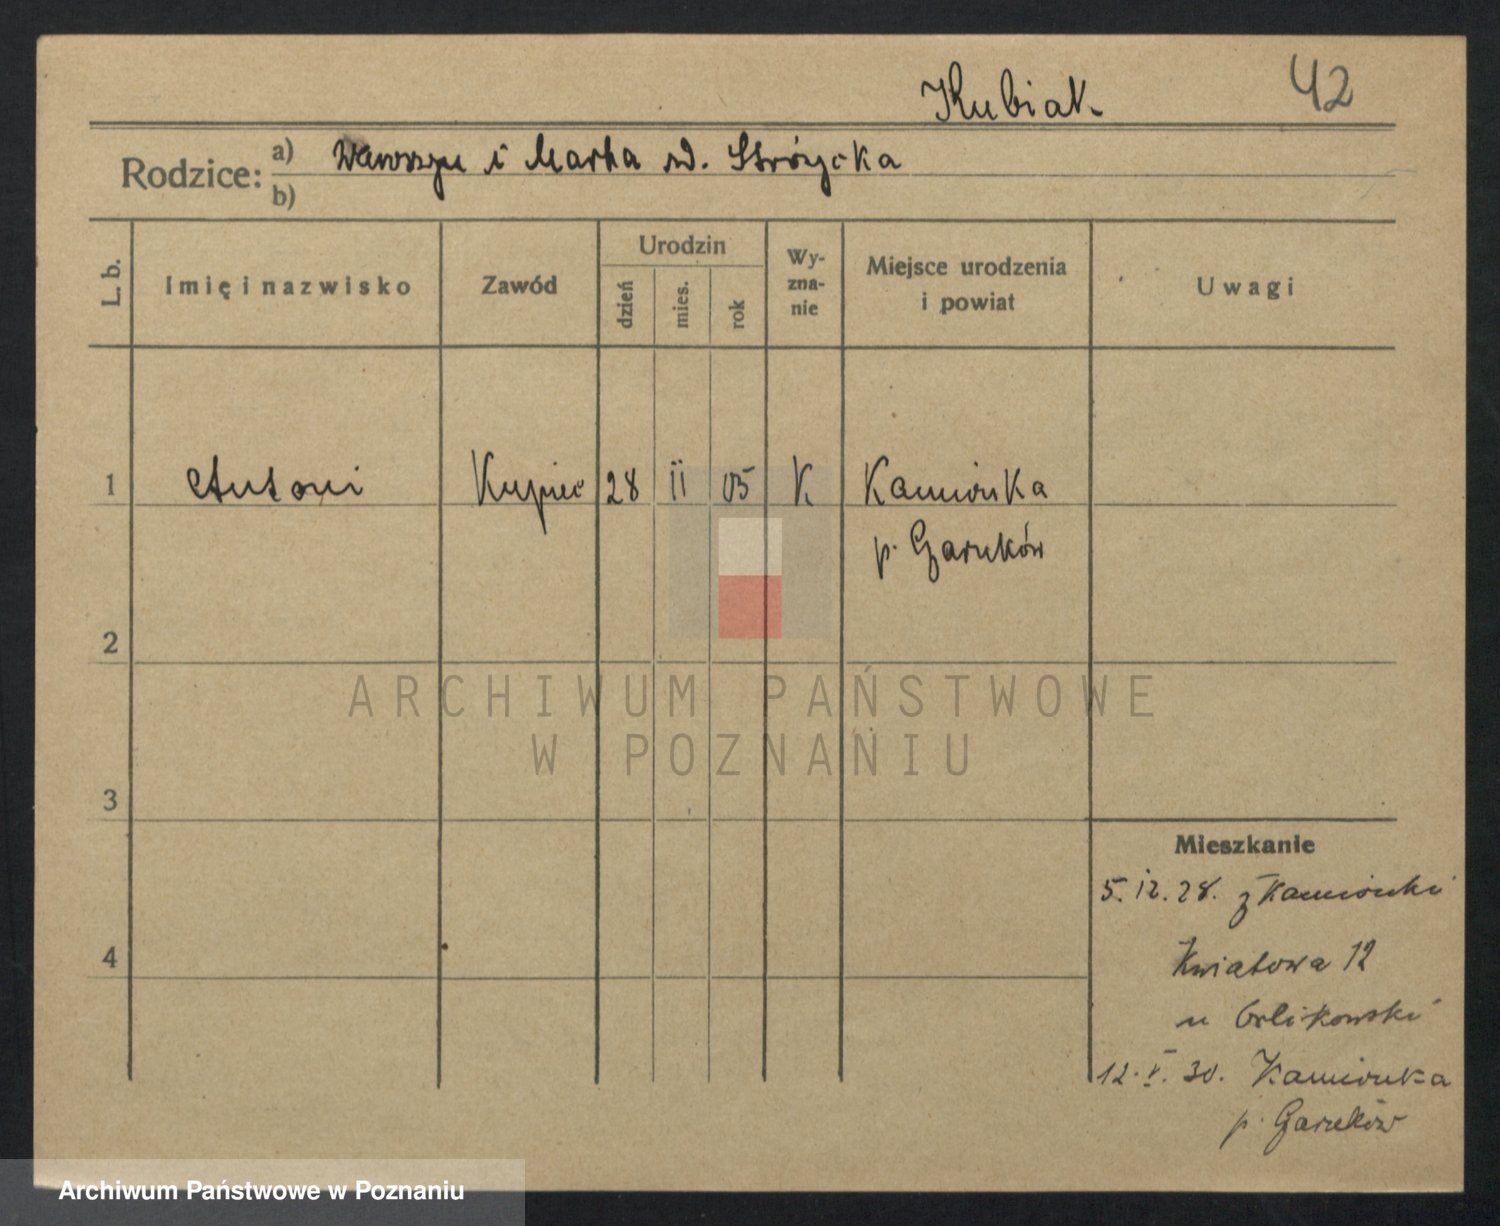 Kubiak 42
Rodzice: a) Wawrzyn i Marta rd. Stróżycka
b)
L. b. Imię i nazwisko Zawód Urodzin dzień mies. rok Wy-zna-nie Miejsce urodzenia i powiat Uwagi
1 Antoni Kupiec 28 II 05 K Kamionka
p. Czarnków
2
ARCHIWUM PAŃSTWOWE
W POZNANIU
3
Mieszkanie
5.12.28. z Kamionki
4
Kwiatowa 12
u Orlikowski
12.V.30. Kamionka
p. Czarnków
Archiwum Państwowe w Poznaniu